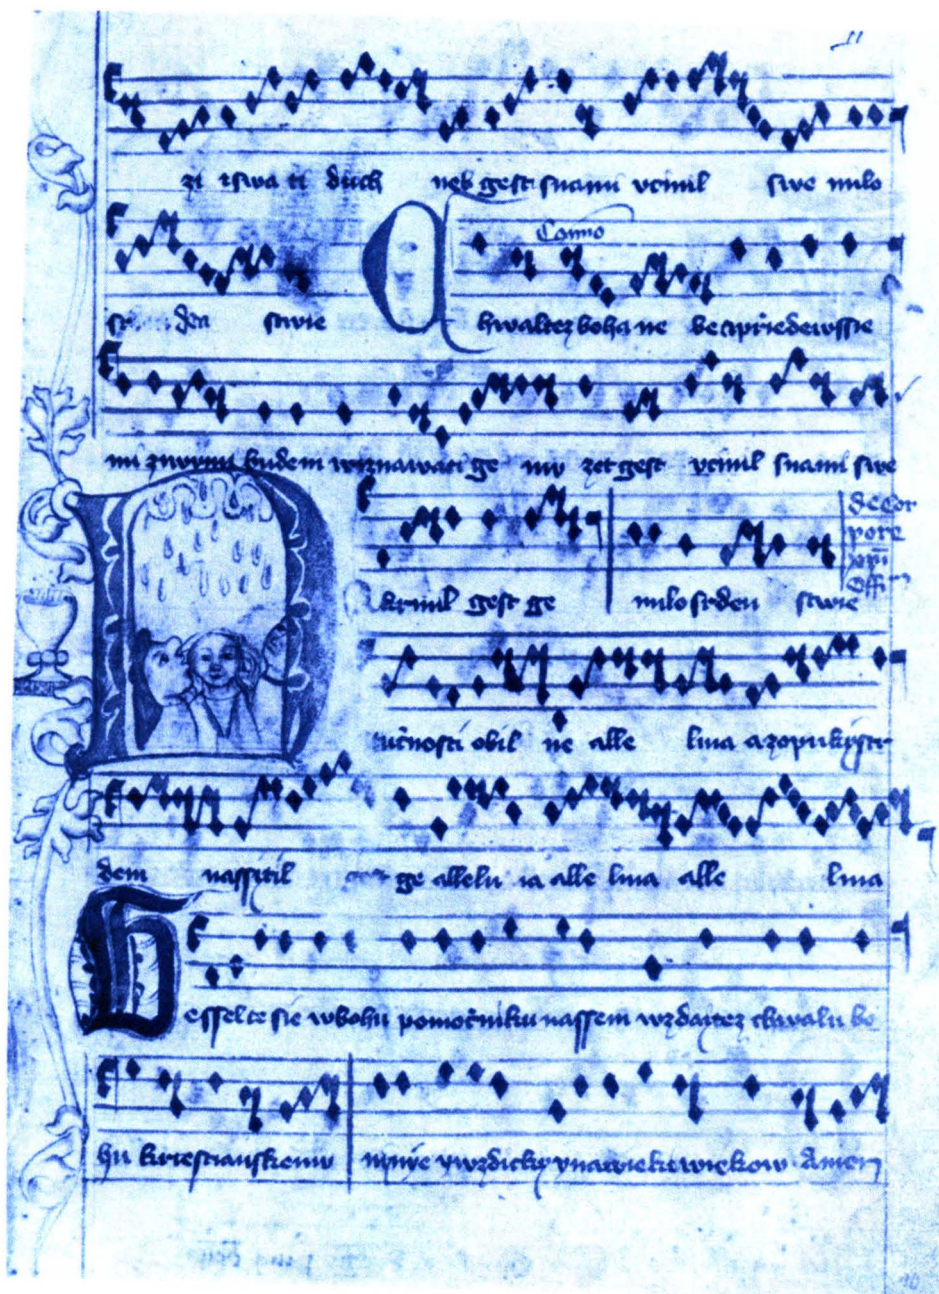 zi iswa ti duch neb gest snami vcinil swe milo
sr den stwie Como
hwaltez boha ne be a prziedewssie
mi zywymi budem wiznawati ge mv zet gest vcinil snami swe
krmil gest ge milosrden stwie de cor
pore
xpi
Off
tucnosti obil ne alle luia a zopuky str
dem nassitil ge allelu ia alle luia alle luia
esselte sie wbohu pomocniku nassem wzdaytez chwalu bo
hu krziestianskemu nynie y wzdicky y na wieki wiekow Amen